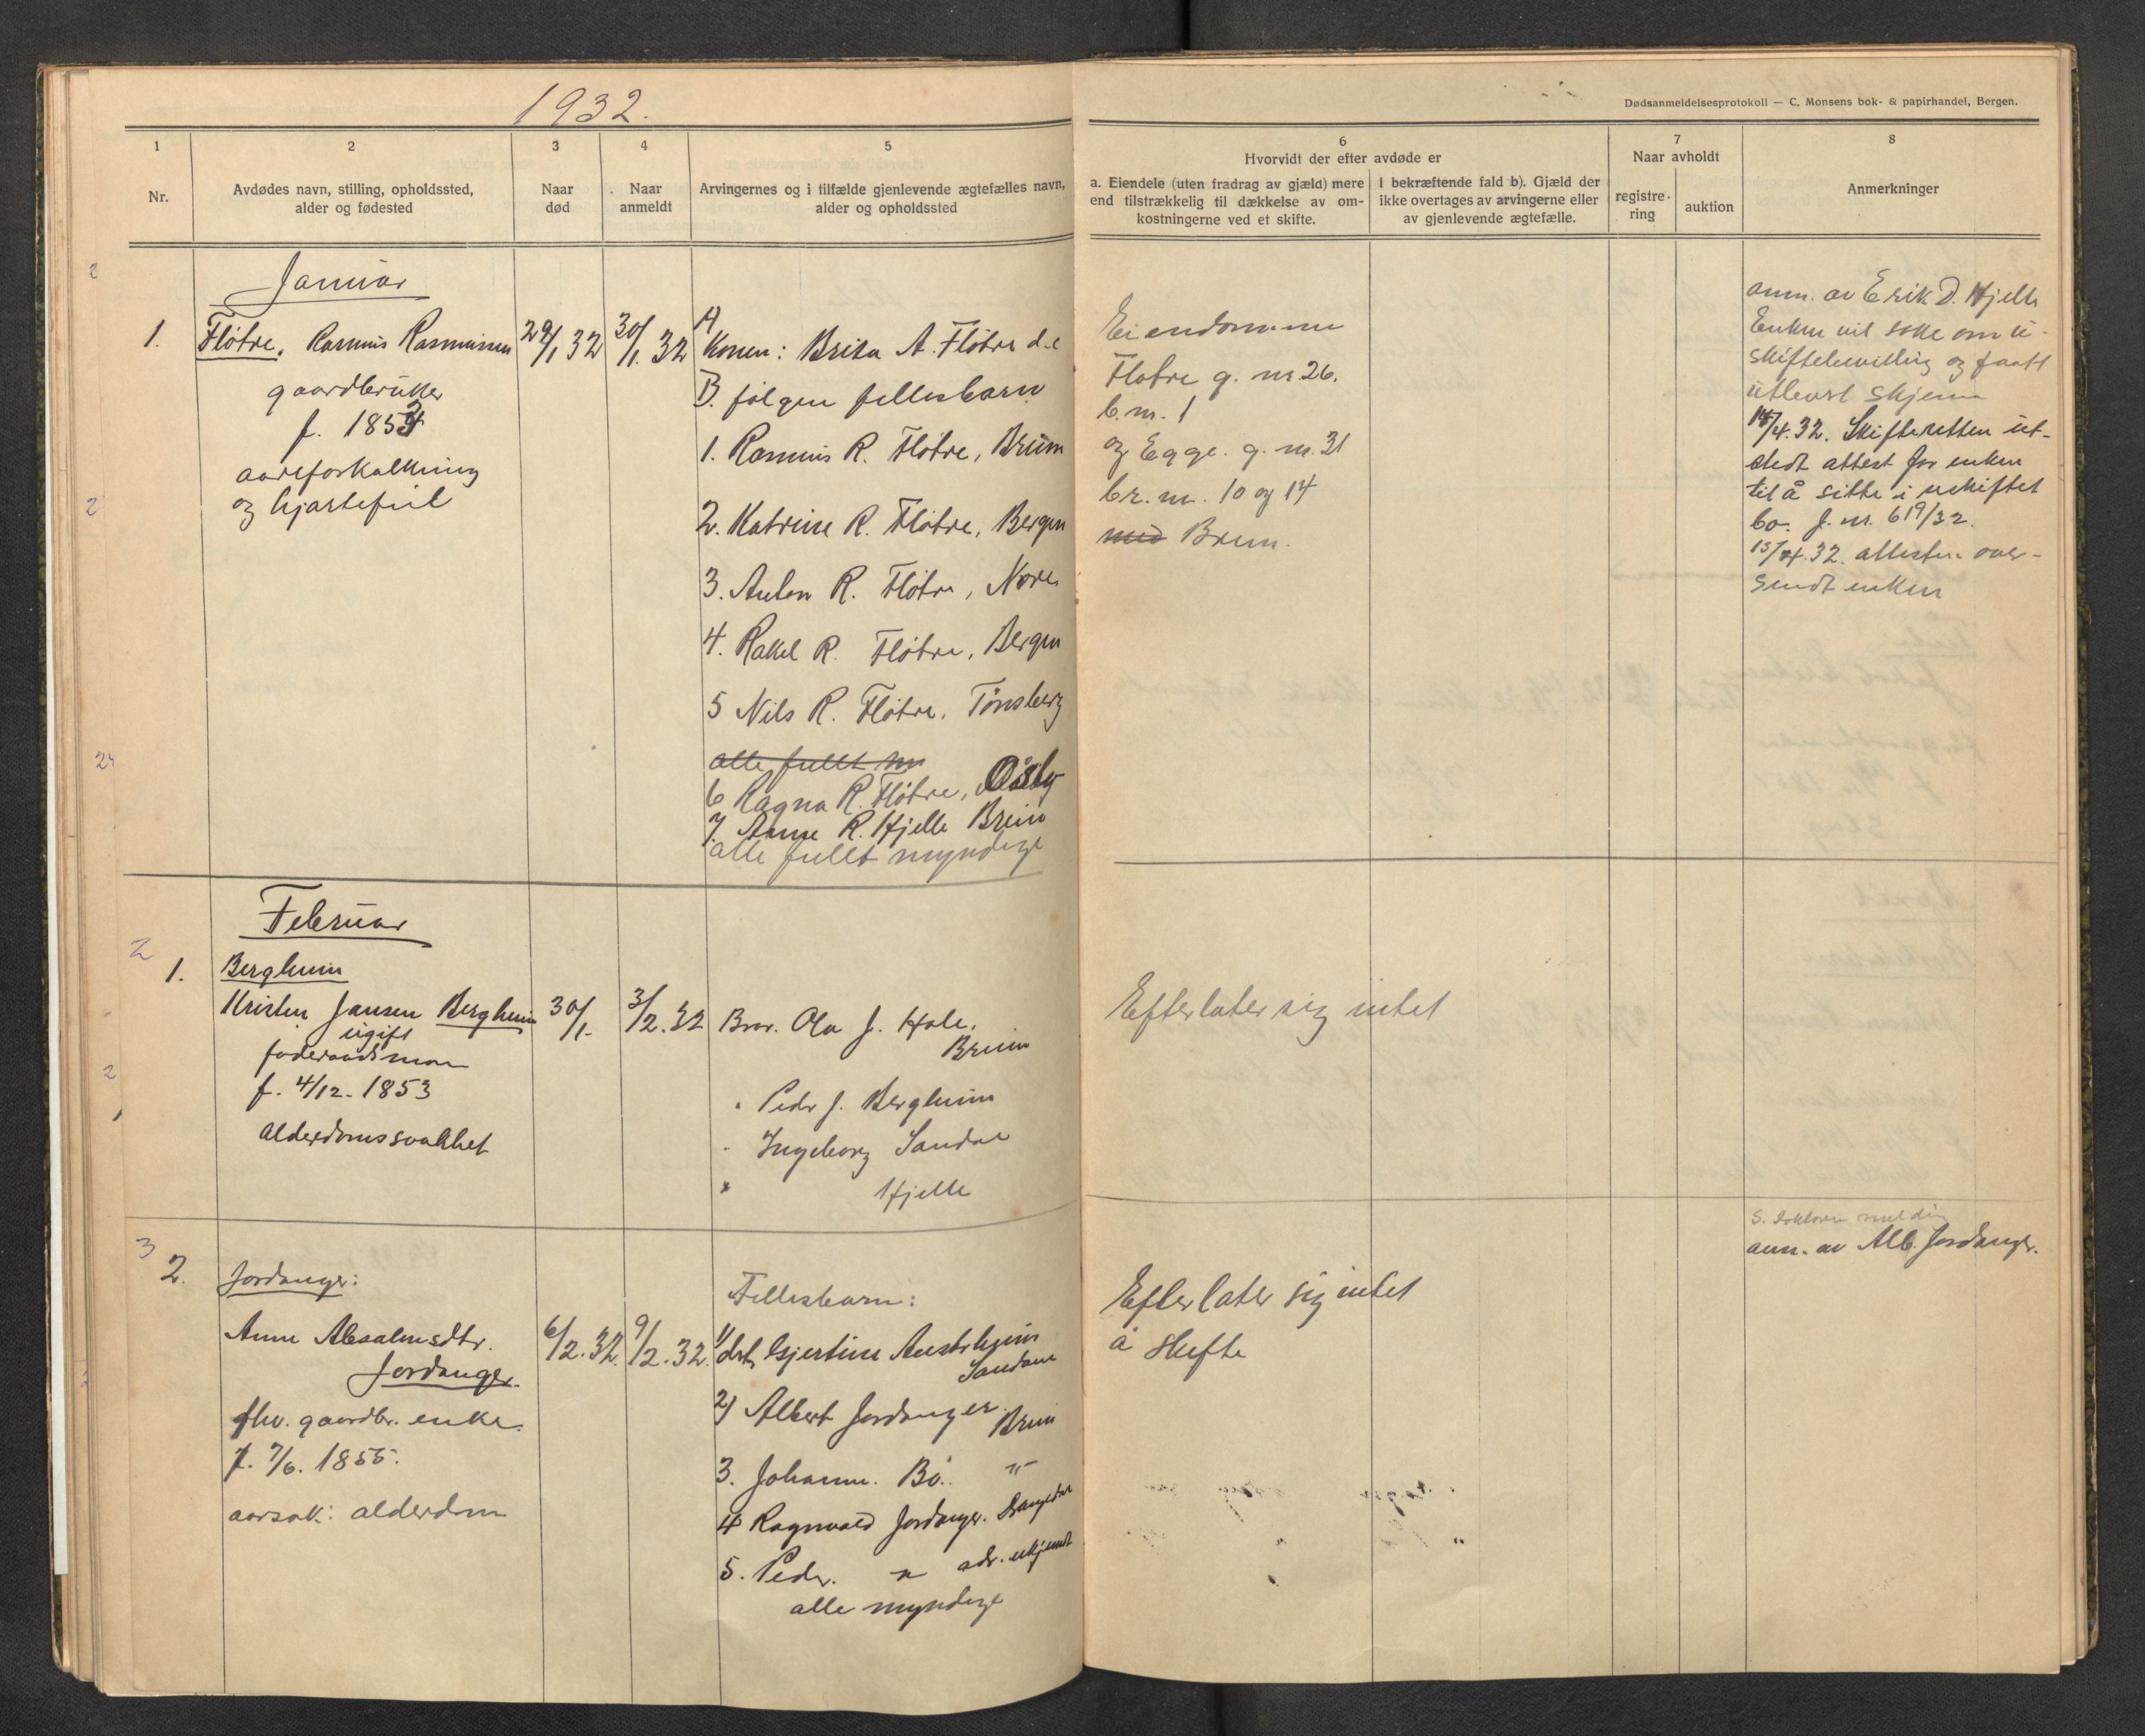 1932.
Dødsanmeldelsesprotokoll — C. Monsens bok- & papirhandel, Bergen.
1
2
3
4
5
6
7
8
Nr.
Avdødes navn, stilling, opholdssted,
alder og fødested
Naar
død
Naar
anmeldt
Arvingernes og i tilfælde gjenlevende ægtefælles navn,
alder og opholdssted
Hvorvidt der efter avdøde er
a. Eiendele (uten fradrag av gjæld) mere
end tilstrækkelig til dækkelse av om-
kostningerne ved et skifte.
I bekræftende fald b). Gjæld der
ikke overtages av arvingerne eller
av gjenlevende ægtefælle.
Naar avholdt
registre-
ring
auktion
Anmerkninger
Januar
1.
Fløtre, Rasmus Rasmussen
gaardbruker
f. 1853
aareforkalkning
og hjartefeil
29/1 32
30/1. 32
A
Konen: Brita A. Fløtre d.e
B. følgen fellesbarn
1. Rasmus R. Fløtre, Breim
2. Katrine R. Fløtre, Bergen
3. Anton R. Fløtre,
4. Rakel R. Fløtre, Bergen
5 Nils R. Fløtre, Tønsberg
alle fullt my
6 Ragna R. Fløtre,
7. Anne R. Hjelle Breim
alle fullt myndige
Eiendommene
Fløtre g. nr 26.
b. nr. 1
og Egge. g. nr. 31
br. nr. 10 og 14
med Breim.
anm. av Erik D. Hjelle
Enken vil søke om u-
skiftebevilling og faatt
utlevert skjema
14/4.32. Skifteretten ut-
stedt attest for enken
til å sitte i uskiftet
bo. J. nr. 619/32.
15/4.32. attesten over-
sendt enken
Februar
2
1.
Bergheim
Kristen Jansen Bergheim
ugift
føderaadsman
f. 4/12. 1853
Alderdomssvakhet
30/1.
3/2. 32
Bror. Ola J. Hole,
Breim
" Peder J. Bergheim
" Ingeborg Sandal
" Hjelle
Efterlater sig intet
3
2.
Jordanger:
Anne Absalonsdtr.
Jordanger.
fhv. gaardbr. enke.
f. 7/6. 1855.
aarsak: alderdom
6/2. 32.
9/2. 32.
Fellesbarn:
1/ dtr. Gjertine Austrheim
Sandane
2) Albert Jordanger.
Breim
3. Johanne. Bø. "
4 Ragnvald Jordanger.
5. Peder. " adr. ukjendt
alle myndige
Efterlater sig intet
å skifte
S. doktoren melding
anm. av Alb. Jordanger.